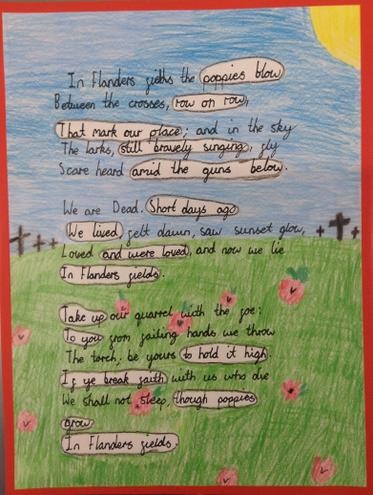 In Flanders fields the poppies blow
Between the crosses, row on row,
That mark our place; and in the sky
The larks, still bravely singing, fly
Scare heard amid the guns below.
We are Dead. Short days ago
We lived, felt dawn, saw sunset glow,
Loved and were loved, and now we lie
In Flanders fields.
Take up our quarrel with the foe:
To you from failing hands we throw
The torch; be yours to hold it high.
If ye break faith with us who die
We shall not sleep, though poppies
grow
In Flanders fields.